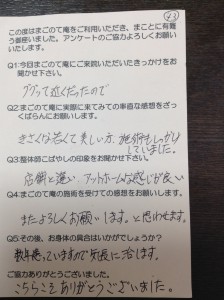 43
この度はまごのて庵をご利用いただき、まことに有難
う御座いました。アンケートのご協力よろしくお願い
いたします。
Q1:今回まごのて庵にご来院いただいたきっかけを
お聞かせ下さい。
ググって近くだったので
Q2:まごのて庵に実際に来てみての率直な感想をざっ
くばらんにお願いします。
きさくな若くて美しい方、施術もしっかり
していました。
Q3:整体師こばやしの印象をお聞かせ下さい。
店舗と違い、アットホームな感じが良い
Q4:まごのて庵の施術を受けての感想をお願いします。
またよろしくお願いします。と思わせます。
Q5:その後、お身体の具合はいかがでしょうか?
数年患っていますので気長に治します。
ご協力ありがとうございました。
こちらこそありがとうございました。